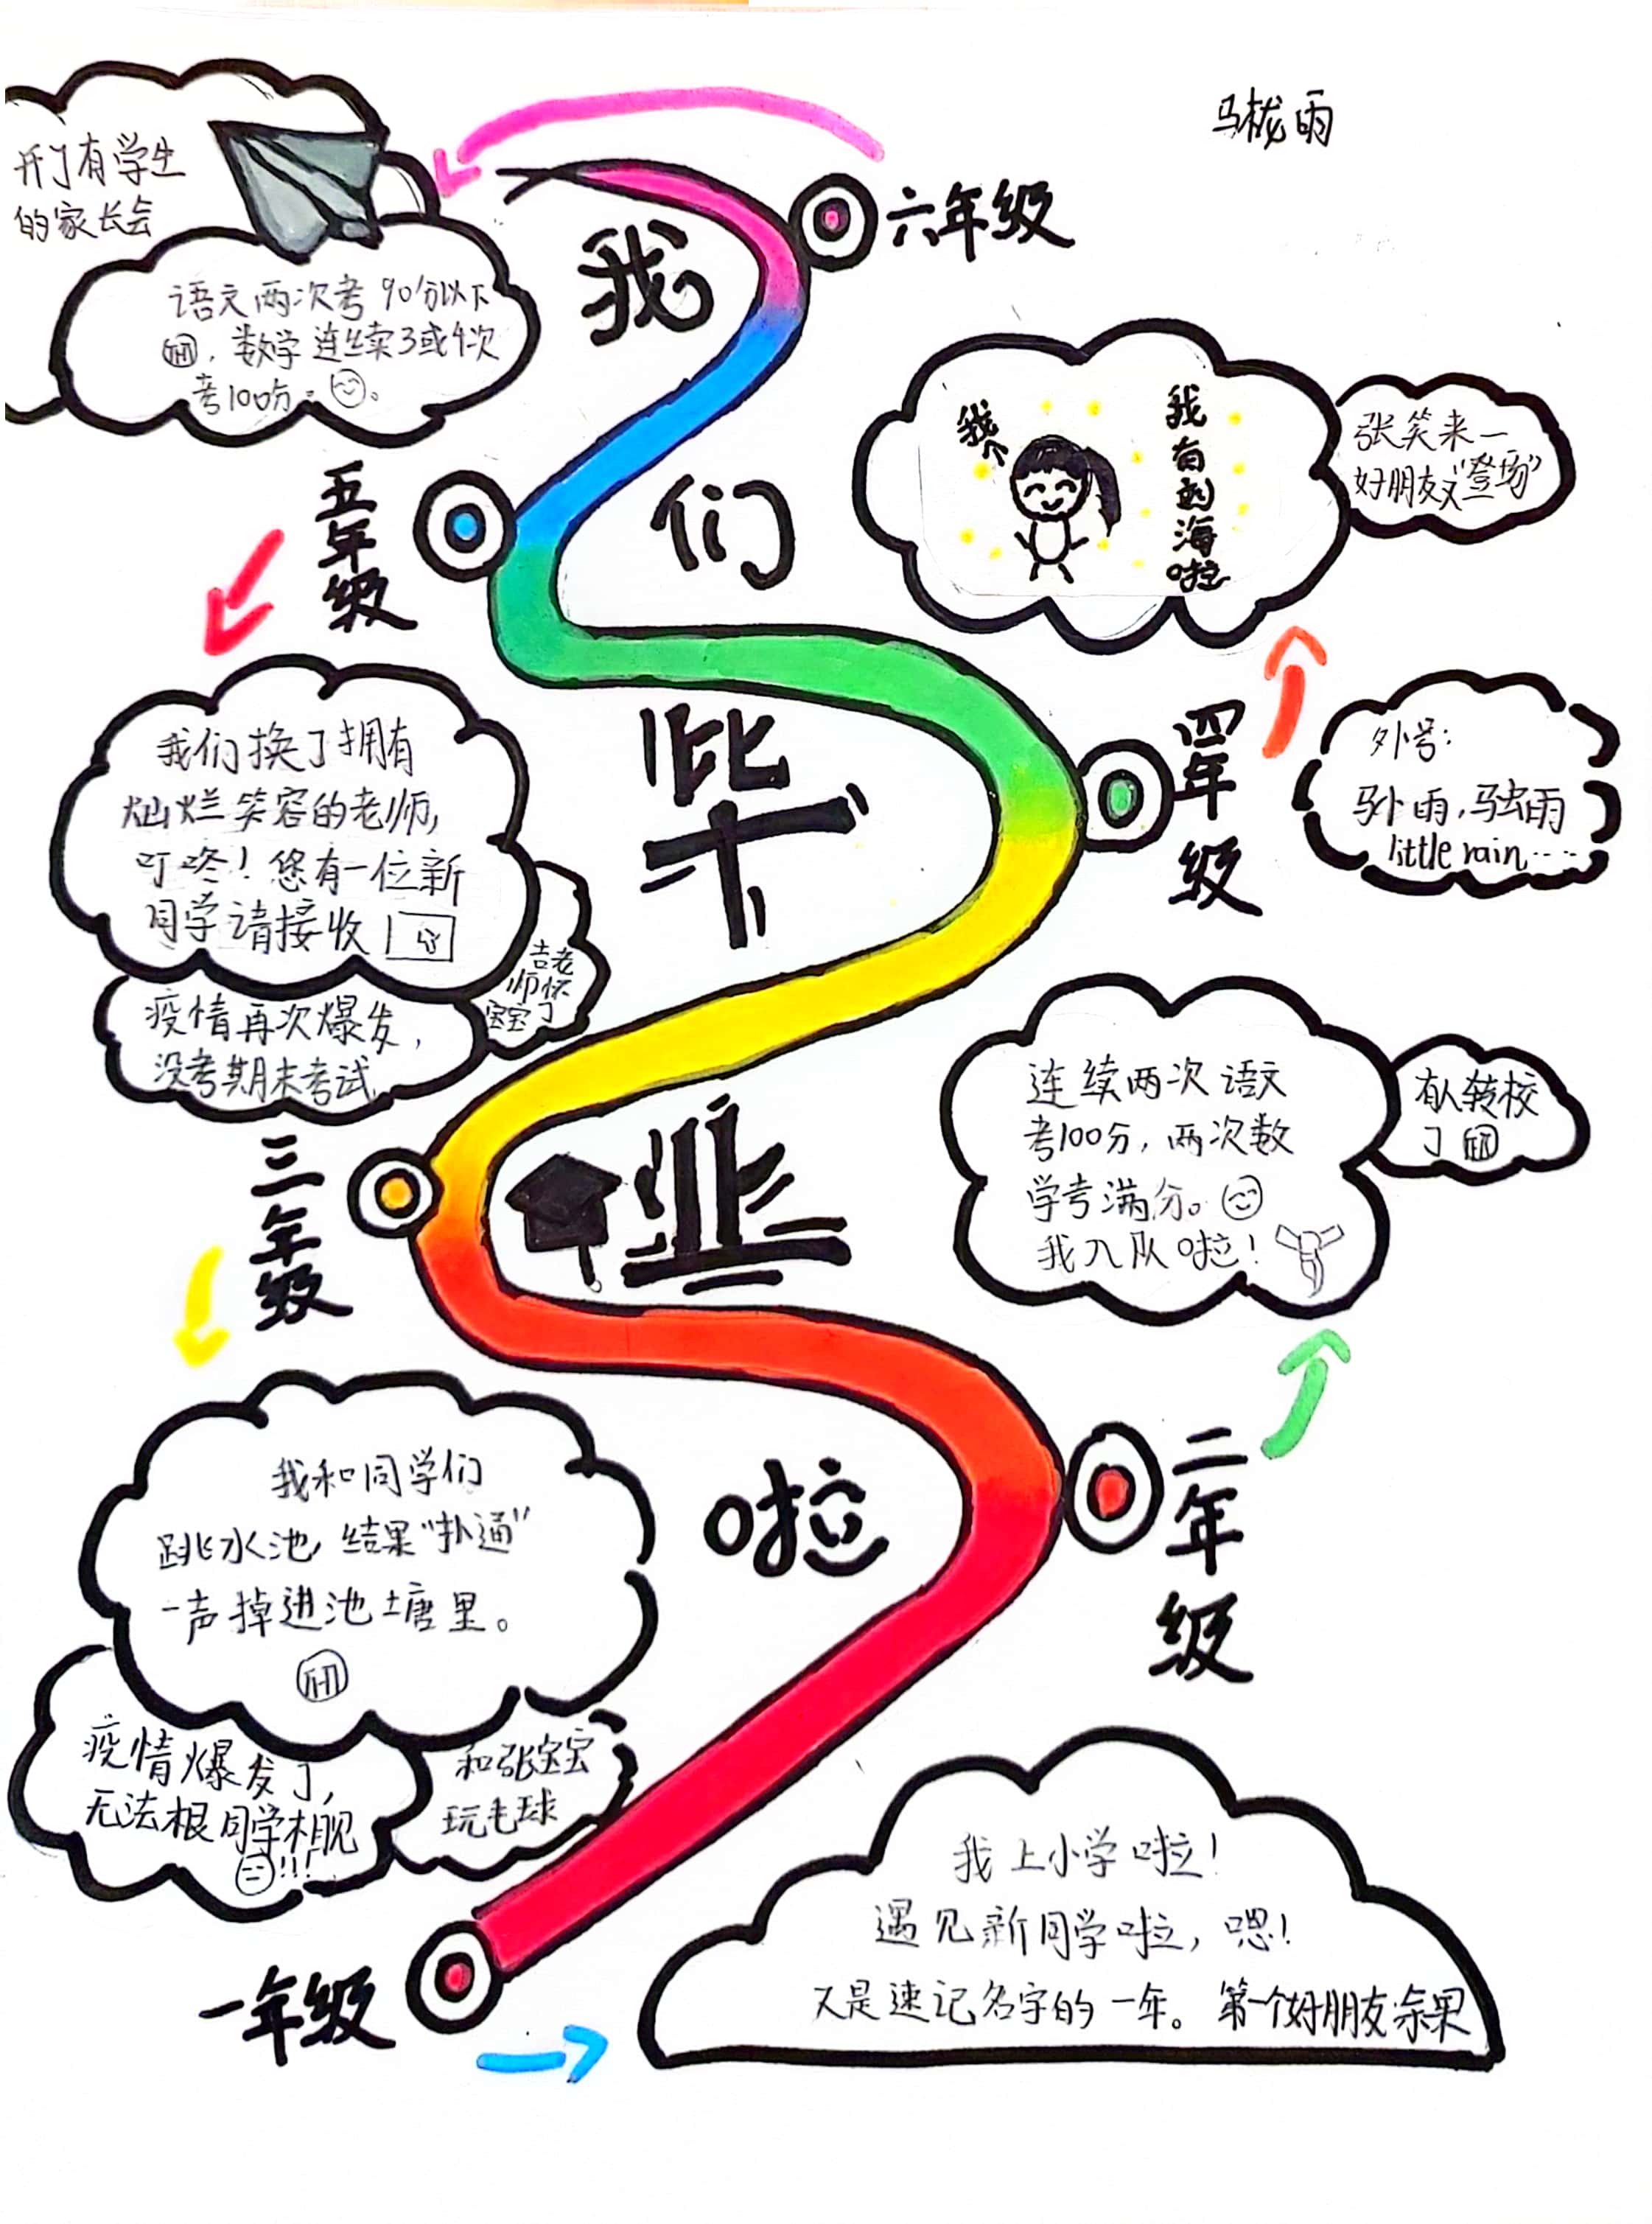 马栊雨
开了有学生
的家长会
语文两次考90分以下
，数学连续3或4次
考100分。
六年级
我
们
毕
业
啦
五年级
我
我有刘海啦
张笑来一
好朋友"登场"
我们换了拥有
灿烂笑容的老师,
叮咚！您有一位新
同学请接收
吉老
师怀
宝宝了
疫情再次爆发，
没考期末考试
四年级
外号：
马外雨，马虫雨
little rain……
三年级
连续两次语文
考100分，两次数
学考满分。
我入队啦！
有人转校
了
我和同学们
跳水池，结果"扑通"
一声掉进池塘里。
疫情爆发了，
无法根同学相见
!!!
和张宝宝
玩毛球
二年级
一年级
我上小学啦！
遇见新同学啦，嗯！
又是速记名字的一年。第一个好朋友涂果